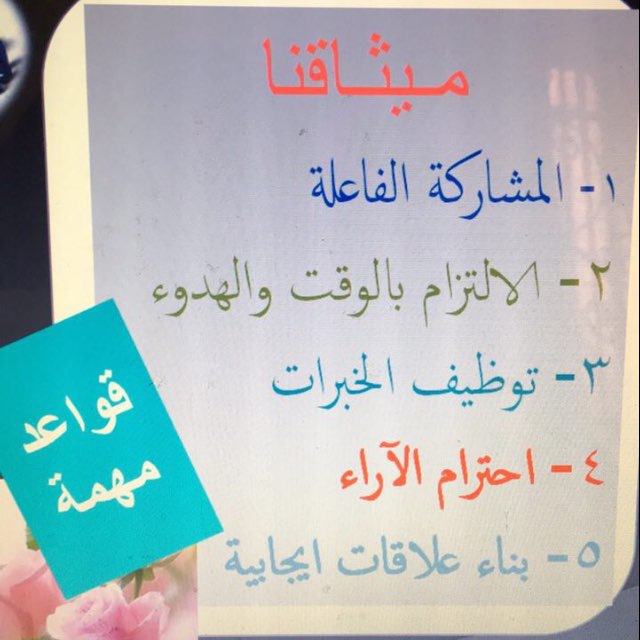 ميثاقنا
١- المشاركة الفاعلة
٢- الالتزام بالوقت والهدوء
٣- توظيف الخبرات
٤- احترام الآراء
٥- بناء علاقات ايجابية
قواعد
مهمة